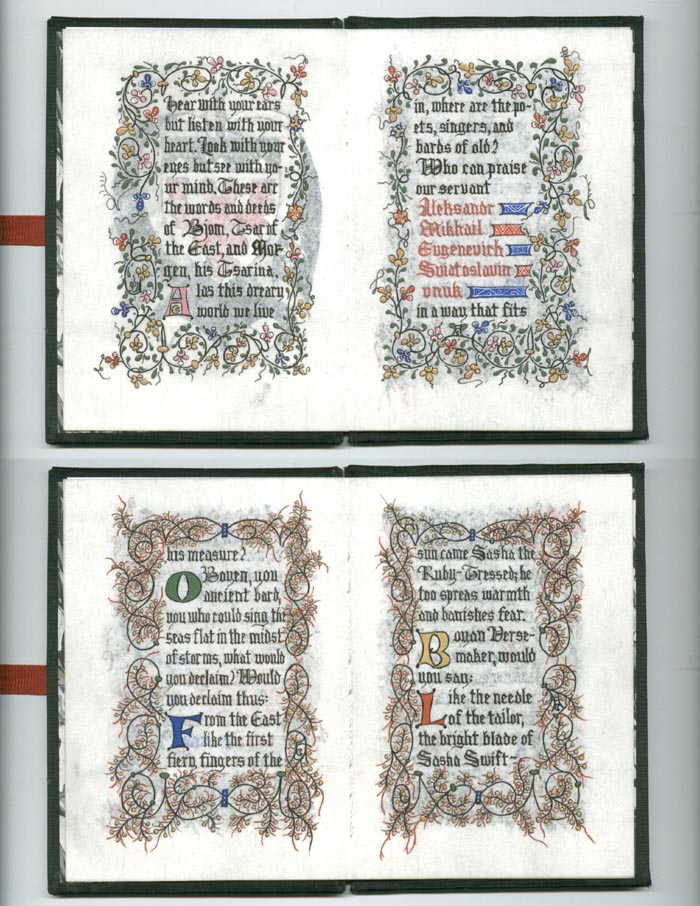 Hear with your ears
but listen with your
heart. Look with your
eyes but see with yo-
ur mind. These are
the words and deeds
of Bjorn, Tsar of
the East, and Mor-
gen, his Tsarina.
Alas this dreary
world we live
in, where are the po-
ets, singers, and
bards of old?
Who can praise
our servant
Aleksandr
Mikhail
Evgenevich
Sviatoslavin
vnuk
in a way that fits
his measure?
O Boyen, you
ancient bard,
you who could sing the
seas flat in the midst
of storms, what would
you declaim? Would
you declaim thus:
From the East
like the first
fiery fingers of the
sun came Sasha the
Ruby-Tressed; he
too spreas warmth
and banishes fear.
Boyan Verse-
maker, would
you say:
Like the needle
of the tailor,
the bright blade of
Sasha Swift-